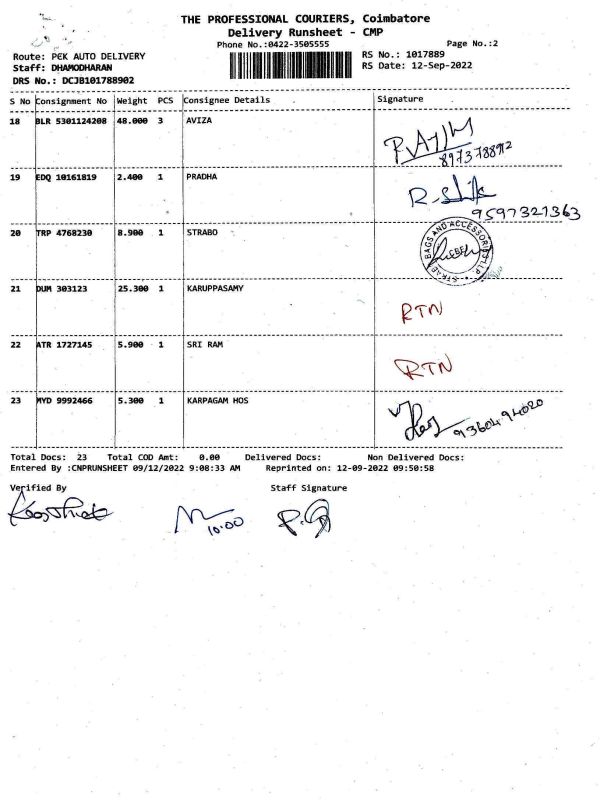 THE PROFESSIONAL COURIERS, Coimbatore
Delivery Runsheet - CMP
Phone No.:0422-3505555 Page No.:2
Route: PEK AUTO DELIVERY RS No.: 1017889
Staff: DHAMODHARAN RS Date: 12-Sep-2022
DRS No.: DCJB101788902
S No Consignment No Weight PCS Consignee Details Signature
18 BLR 5301124208 48.000 3 AVIZA
8973788912
19 EDQ 10161819 2.400 1 PRADHA
9597321363
20 TRP 4768230 8.900 1 STRABO
BAGS AND ACCESSORIES LLP
21 DUM 303123 25.300 1 KARUPPASAMY RTN
22 ATR 1727145 5.900 1 SRI RAM RTN
23 MYD 9992466 5.300 1 KARPAGAM HOS
9360494020
Total Docs: 23 Total COD Amt: 0.00 Delivered Docs: Non Delivered Docs:
Entered By :CNPRUNSHEET 09/12/2022 9:08:33 AM Reprinted on: 12-09-2022 09:50:58
Verified By Staff Signature
10:00